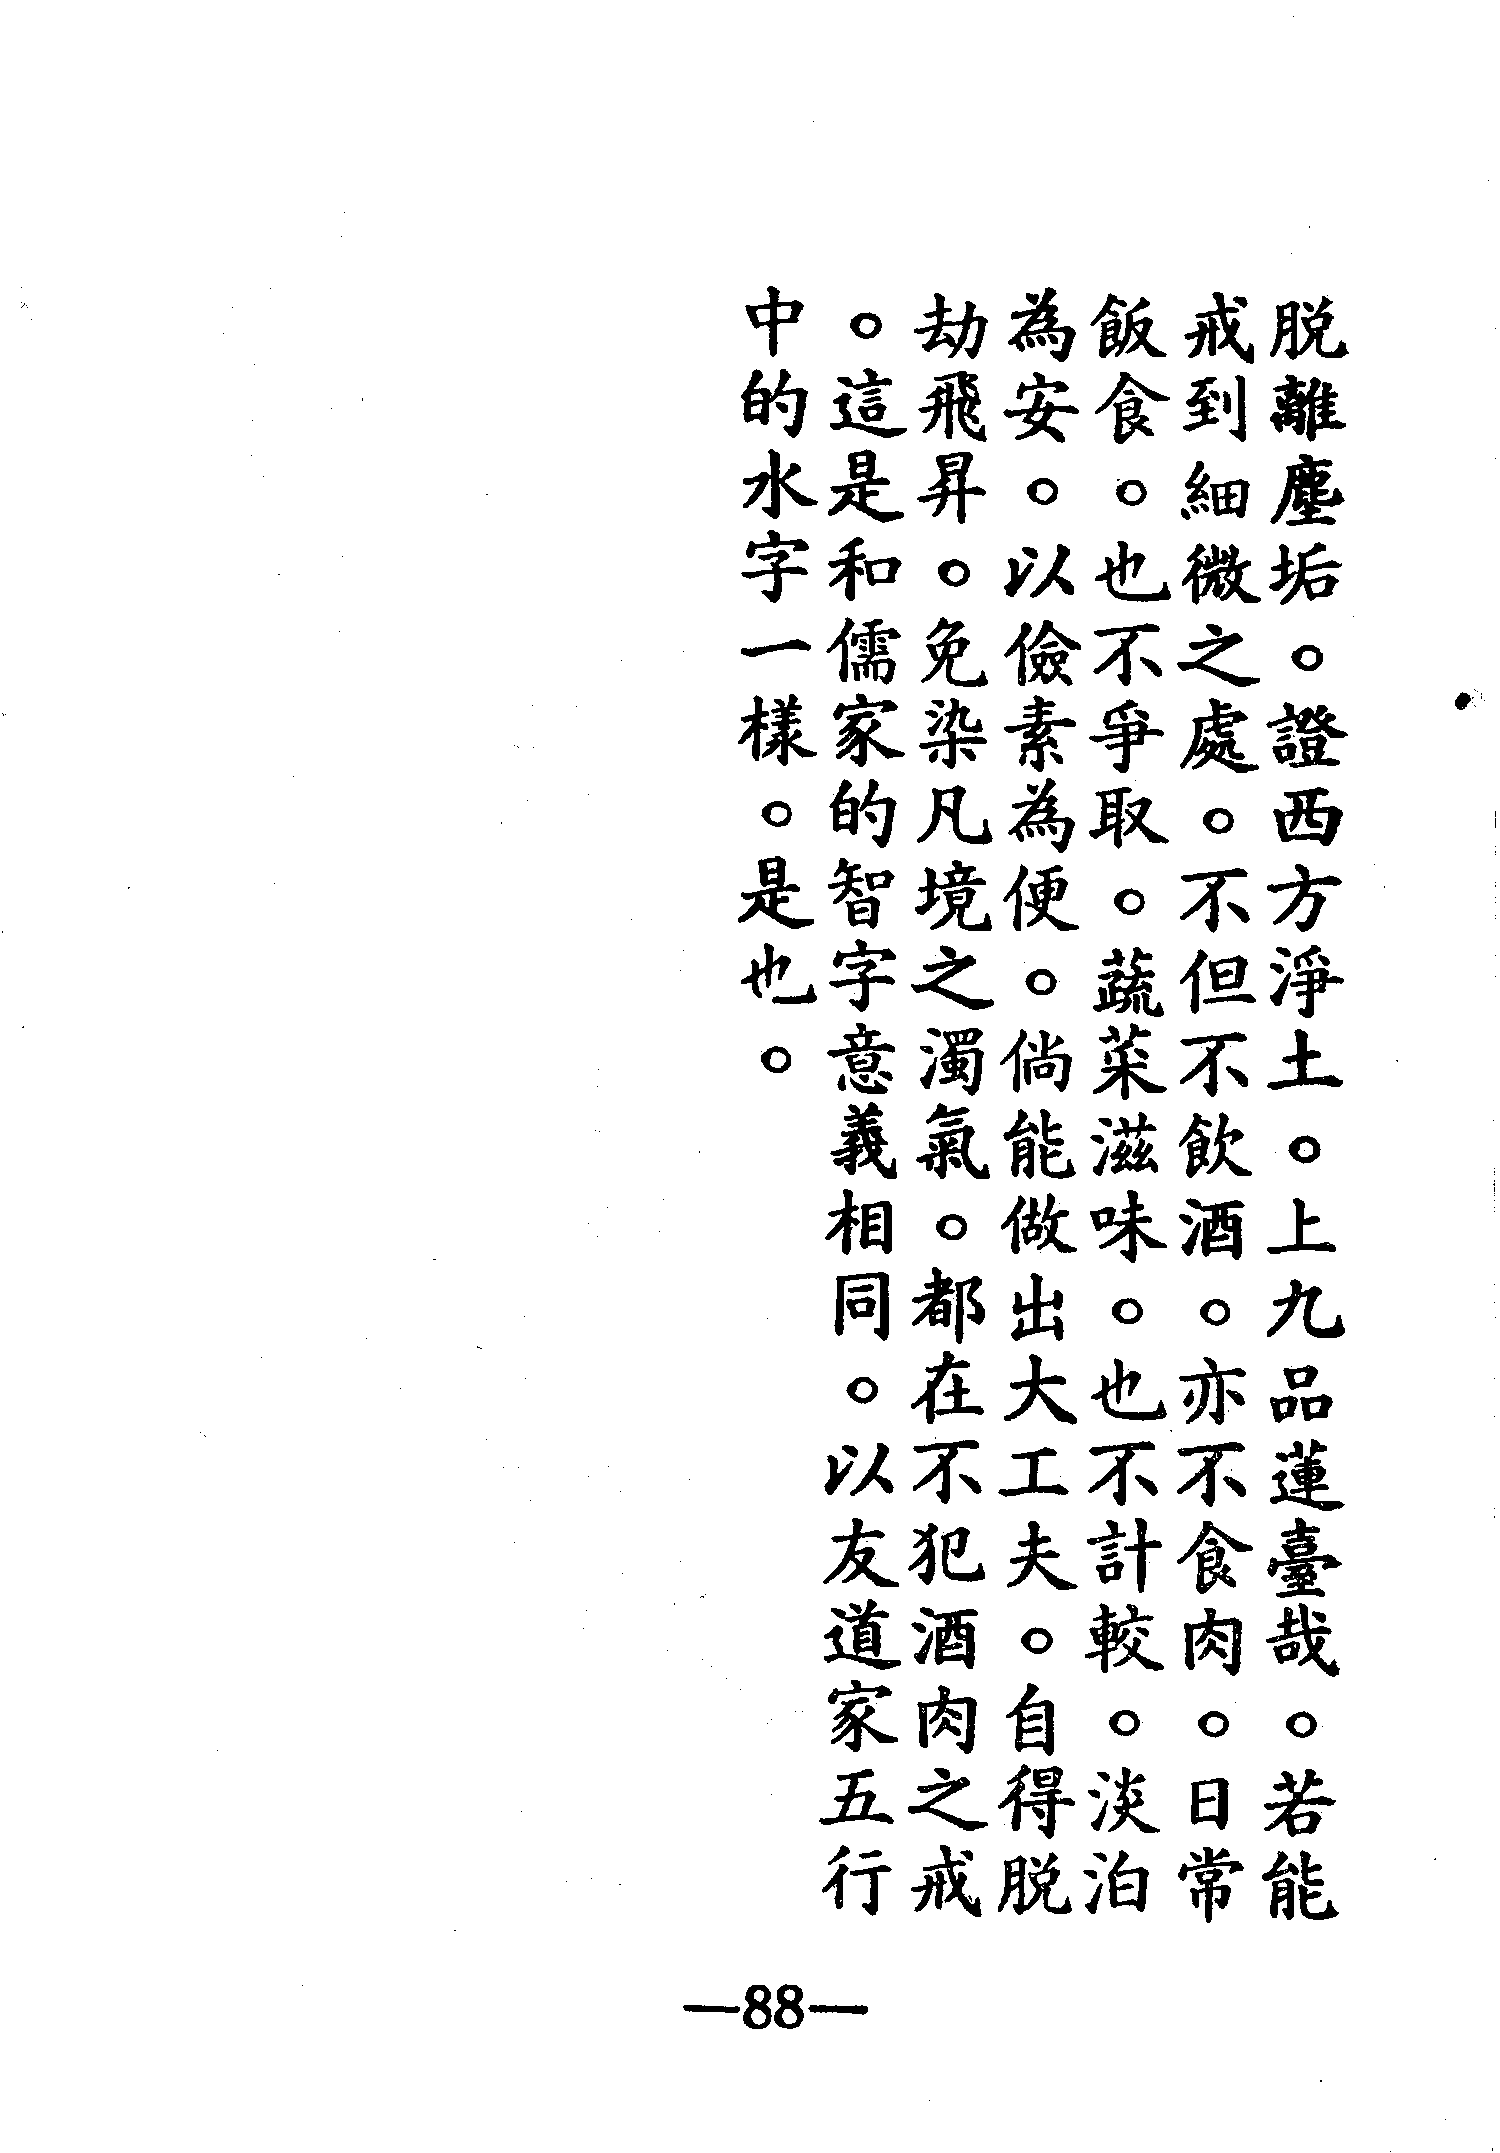 脫離塵垢。證西方淨土。上九品蓮臺哉。若能
戒到細微之處。不但不飲酒。亦不食肉。日常
飯食。也不爭取。蔬菜滋味。也不計較。淡泊
為安。以儉素為便。倘能做出大工夫。自得脫
劫飛昇。免染凡境之濁氣。都在不犯酒肉之戒
。這是和儒家的智字意義相同。以友道家五行
中的水字一樣。是也。
—88—